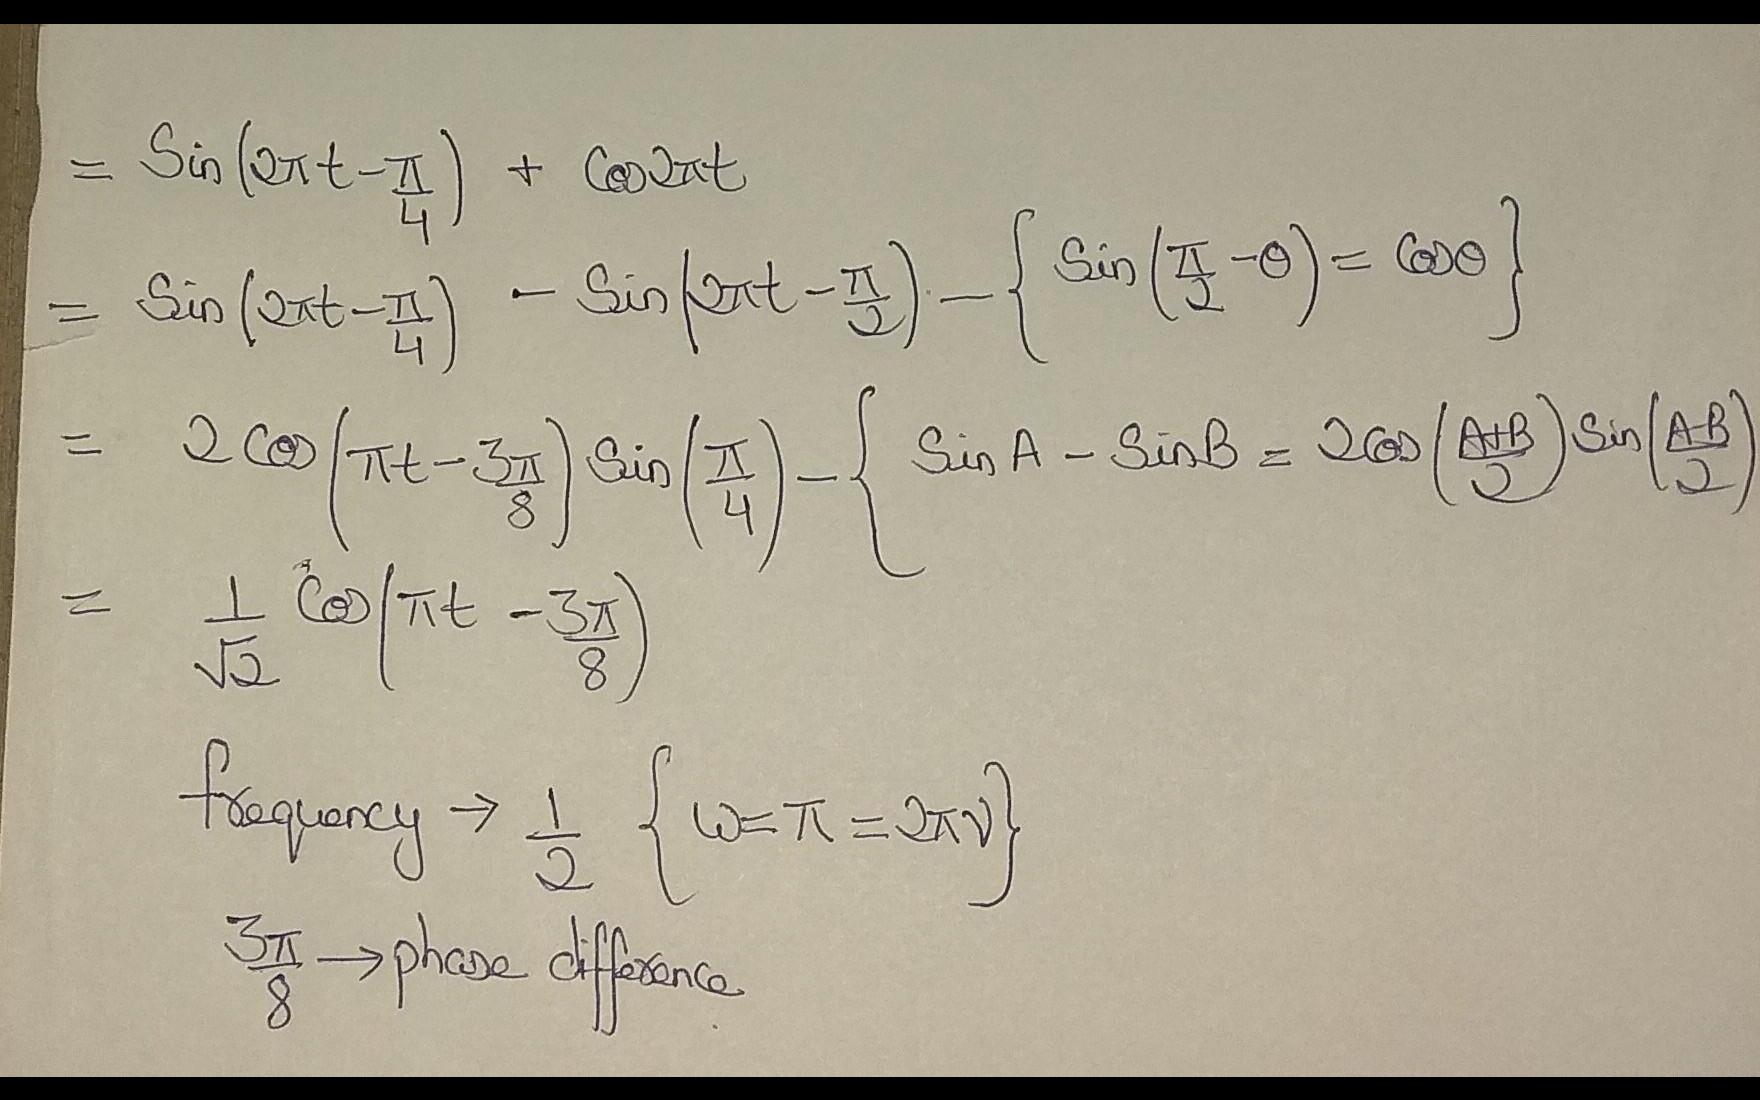 = Sin(2πt - π/4) + Cos2πt
= Sin(2πt - π/4) - Sin(2πt - π/2) - { Sin(π/2 - θ) = Cosθ }
= 2 Cos(πt - 3π/8) Sin(π/4) - { Sin A - Sin B = 2 Cos(A+B/2) Sin(A-B/2)
= 1/√2 Cos(πt - 3π/8)
frequency → 1/2 { ω = π = 2πν }
3π/8 → phase difference